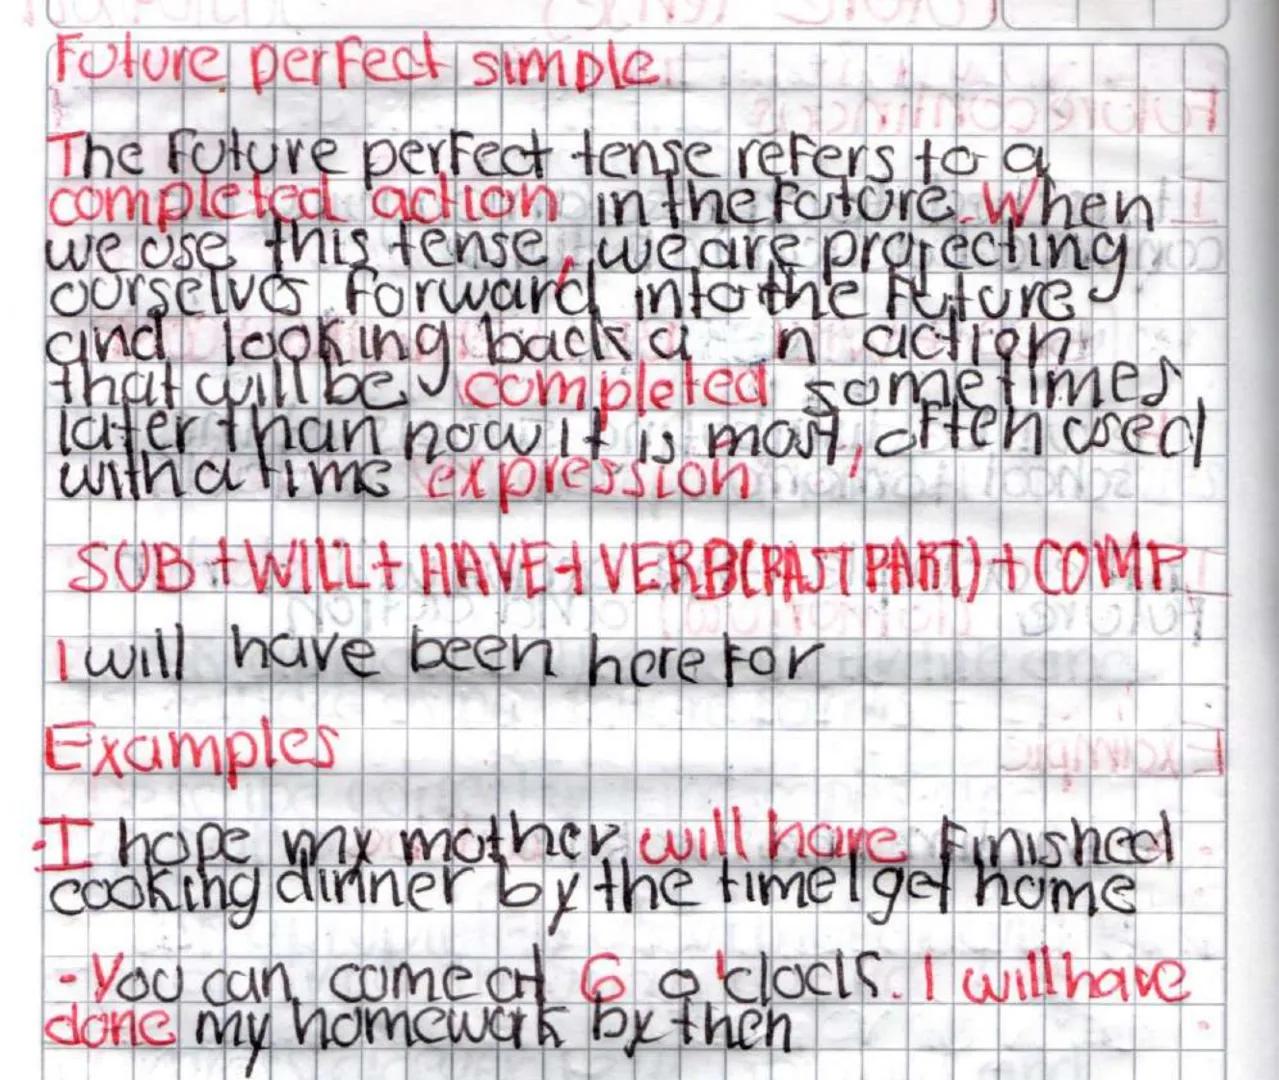 Future perfect simple
The future perfect tense refers to a
completed action in the future. When
we use this tense, we are projecting
ourselves forward into the future
and looking back a n action
that will be completed sometimes
later than now it is most, often used
with a time expression
SUB + WILL + HAVE + VERB(PAST PART) + COMP
I will have been here for
Examples
· I hope my mother will have finished
cooking dinner by the time I get home
- You can come at 6 o'clock. I will have
done my homework by then